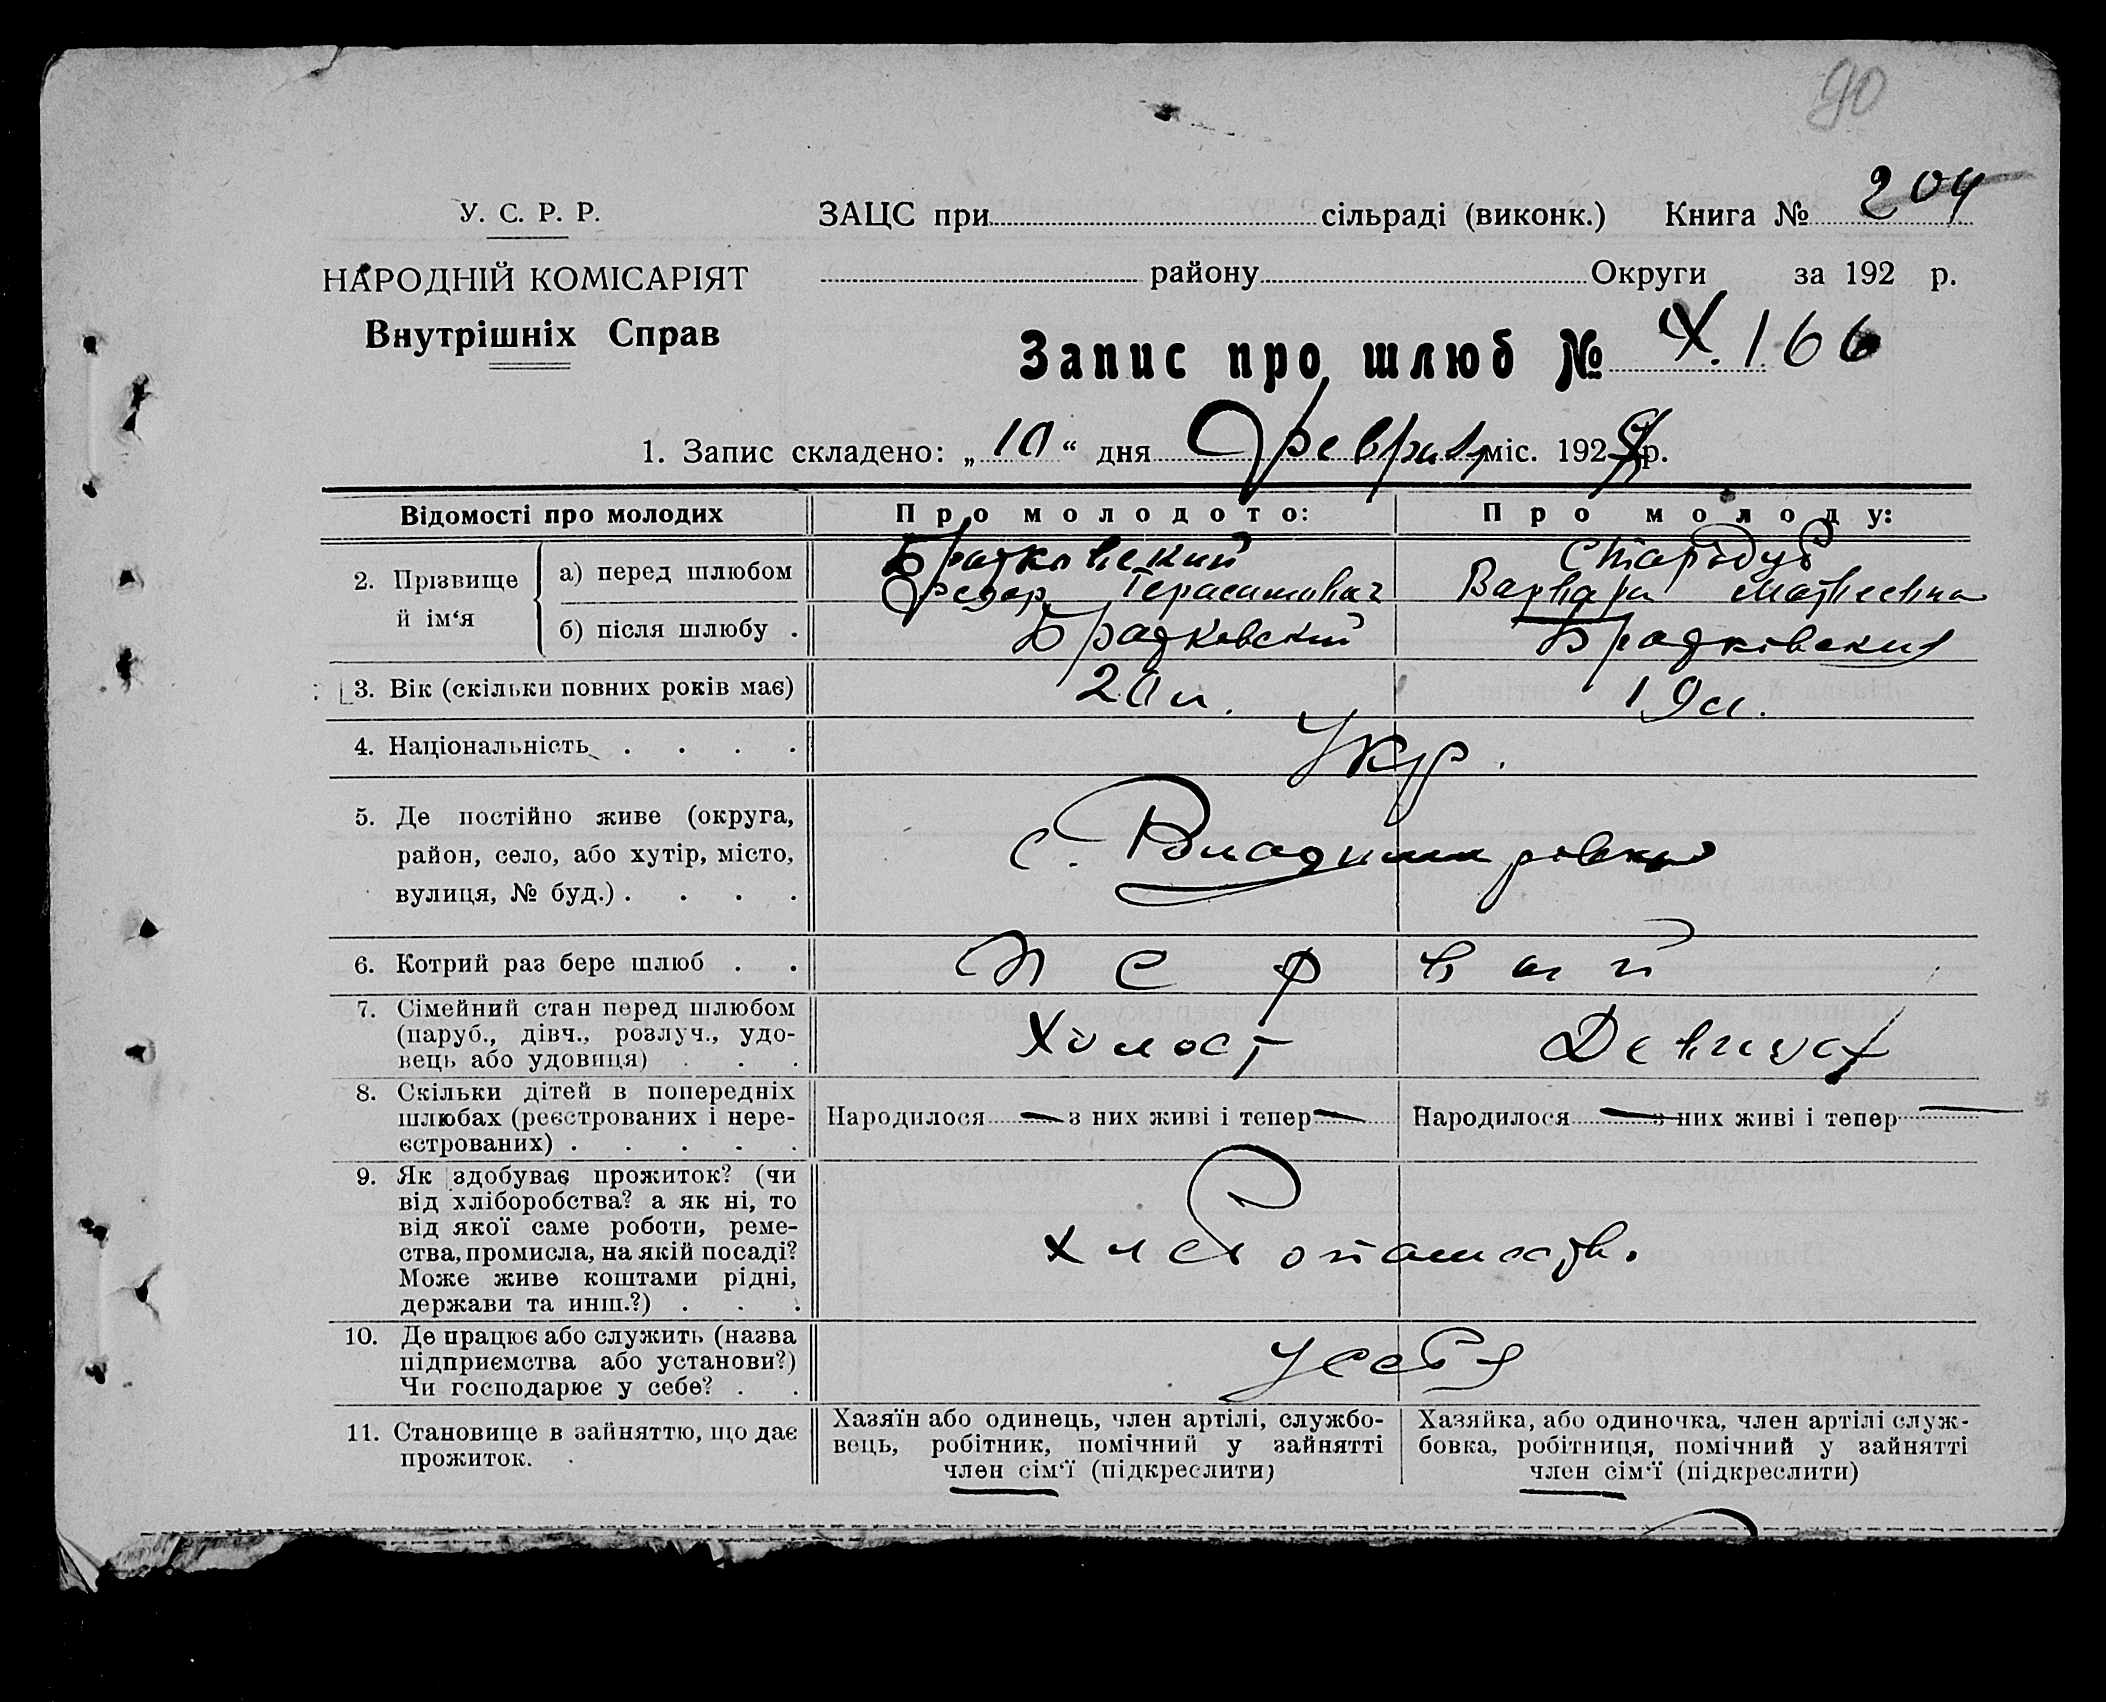 90
У. С. Р. Р.
НАРОДНІЙ КОМІСАРІЯТ
Внутрішніх Справ
ЗАЦС при сільраді (виконк.) Книга № 204
району Округи за 192 р.
Запис про шлюб № 166
1. Запис складено: „10“ дня Февраля міс. 192 р.
Відомості про молодих
Про молодого:
Про молоду:
2. Прізвище й ім‘я
а) перед шлюбом
Братковский
Федор Герасимович
Стародуб
Варвара Матвеевна
б) після шлюбу .
Братковский
Братковская
3. Вік (скільки повних років має)
20 л.
19 л.
4. Національність . . . .
Укр.
5. Де постійно живе (округа,
район, село, або хутір, місто,
вулиця, № буд.) . . . .
с. Владимировка
6. Котрий раз бере шлюб . .
Первый
7. Сімейний стан перед шлюбом
(паруб., дівч., розлуч., удо-
вець або удовиця) . . .
Холост
8. Скільки дітей в попередніх
шлюбах (реєстрованих і нере-
єстрованих) . . . . .
Народилося — з них живі і тепер —
Народилося — з них живі і тепер —
9. Як здобуває прожиток? (чи
від хліборобства? а як ні, то
від якої саме роботи, реме-
ства, промисла, на якій посаді?
Може живе коштами рідні,
держави та инш.?) . . .
хлебопашеств.
10. Де працює або служить (назва
підприємства або установи?)
Чи господарює у себе? . .
у себя
11. Становище в зайняттю, що дає
прожиток.
Хазяїн або одинець, член артілі, службо-
вець, робітник, помічний у зайнятті
член сім‘ї (підкреслити)
Хазяйка, або одиночка, член артілі служ-
бовка, робітниця, помічний у зайнятті
член сім‘ї (підкреслити)